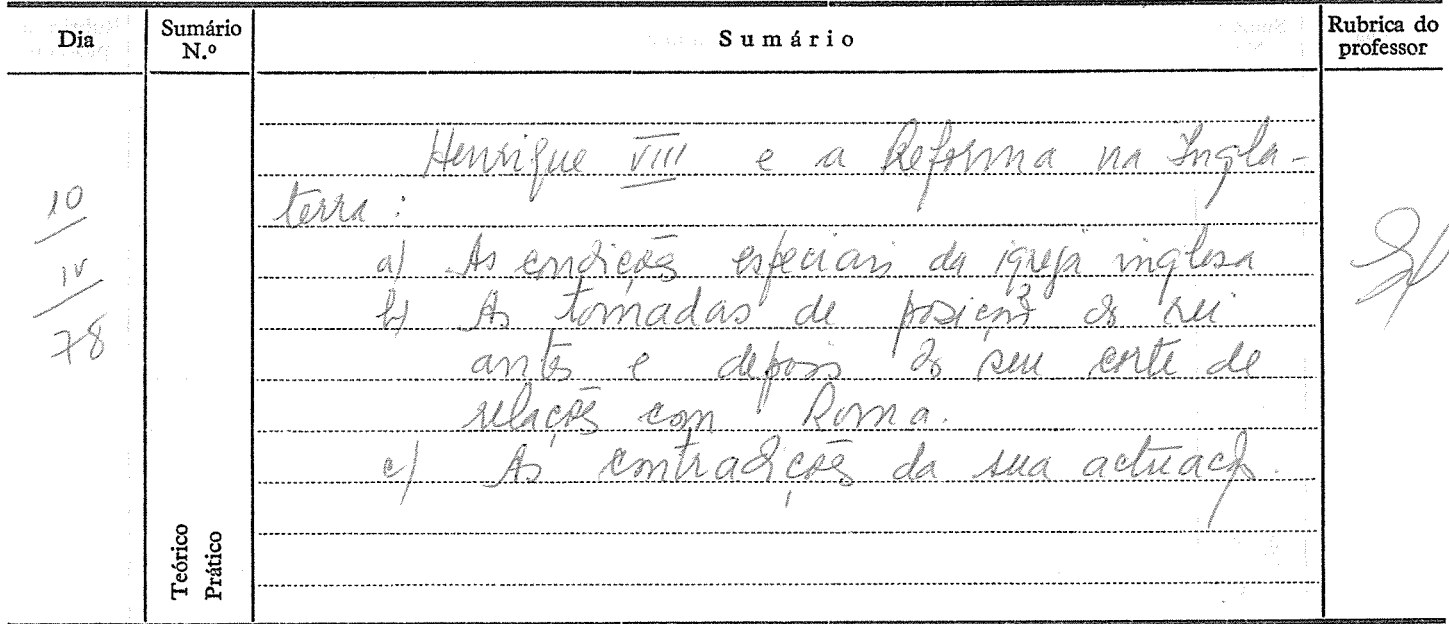 Dia
Sumário N.º
Sumário
Rubrica do professor
10
IV
78
Henrique VIII e a Reforma na Ingla-
terra:
a) As condições especiais da igreja inglesa
b) As tomadas de posição do rei
antes e depois do seu corte de
relações com Roma.
c) As contradições da sua actuação.
Teórico
Prático